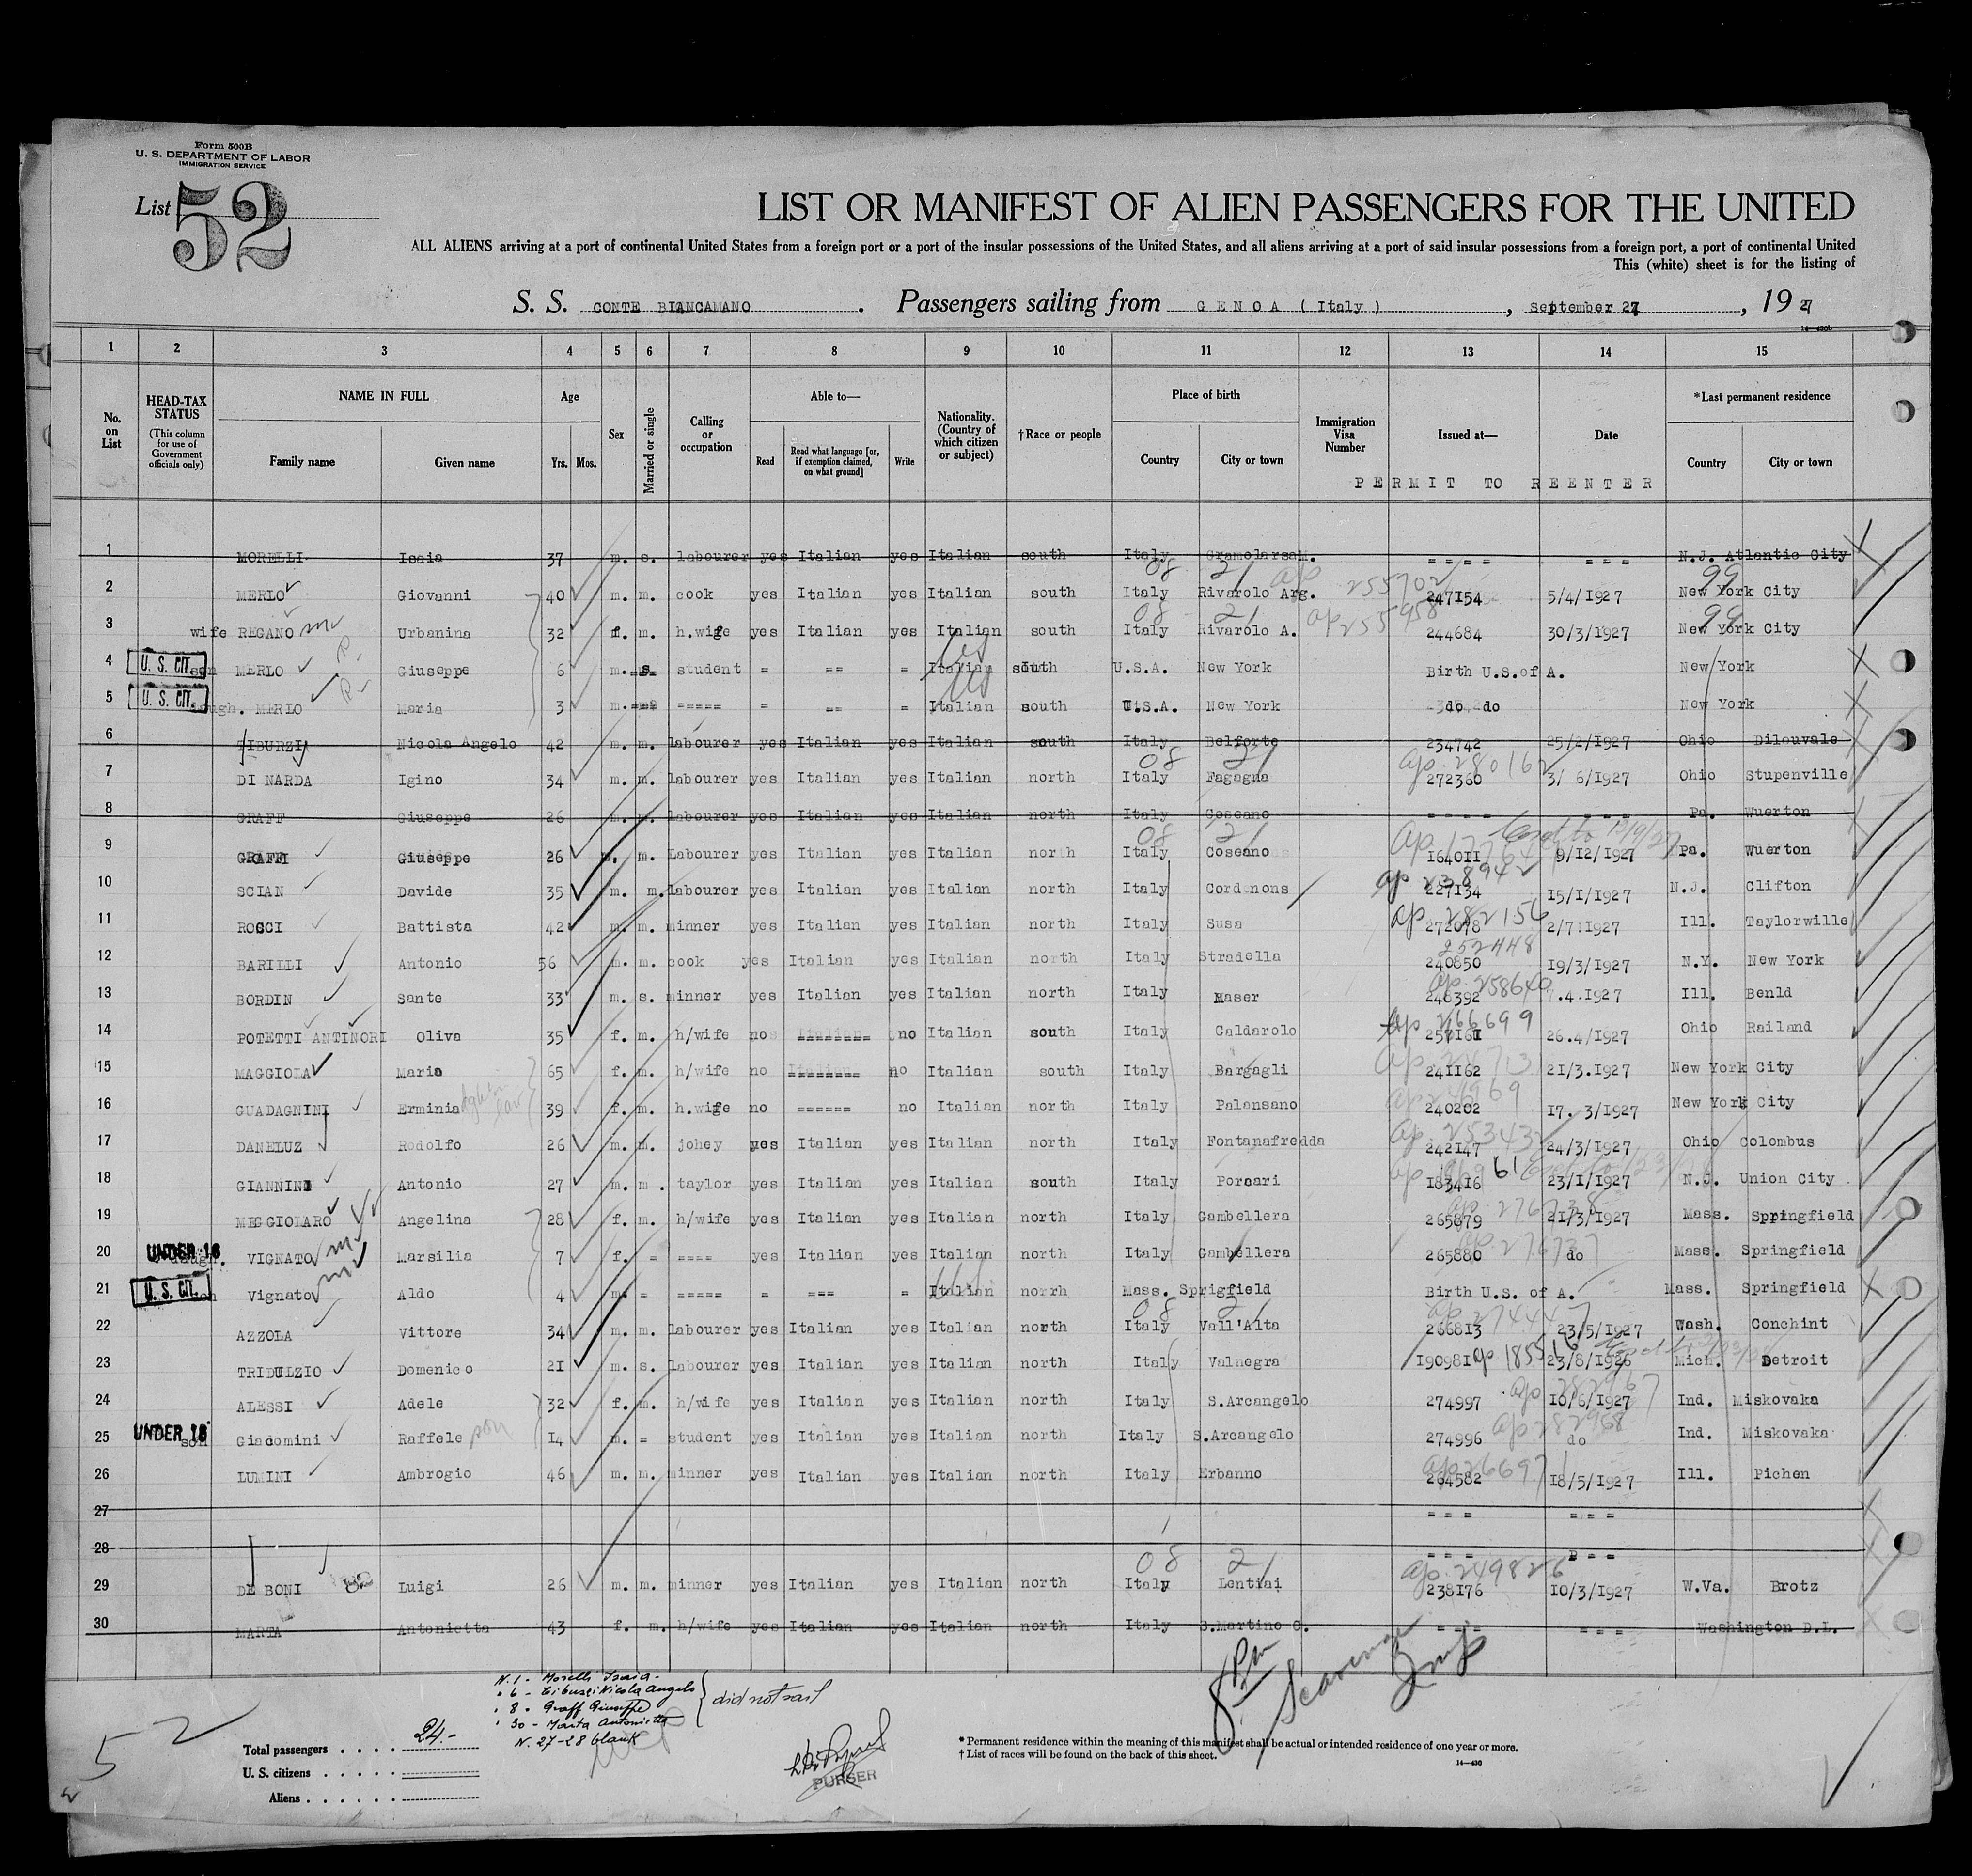 Form 500B
U. S. DEPARTMENT OF LABOR
IMMIGRATION SERVICE
List 52
LIST OR MANIFEST OF ALIEN PASSENGERS FOR THE UNITED
ALL ALIENS arriving at a port of continental United States from a foreign port or a port of the insular possessions of the United States, and all aliens arriving at a port of said insular possessions from a foreign port, a port of continental United
This (white) sheet is for the listing of
S. S. CONTE BIANCAMANO . Passengers sailing from GENOA ( Italy ) , September 27 , 19 27
1 2 3 4 5 6 7 8 9 10 11 12 13 14 15
No. on List
HEAD-TAX STATUS
(This column for use of Government officials only)
NAME IN FULL
Family name Given name
Age
Yrs. Mos.
Sex
Married or single
Calling or occupation
Able to—
Read
Read what language [or, if exemption claimed, on what ground]
Write
Nationality. (Country of which citizen or subject)
†Race or people
Place of birth
Country City or town
Immigration Visa Number
Issued at—
Date
PERMIT TO REENTER
*Last permanent residence
Country City or town
1 MORELLI Isaia 37 m. s. labourer yes Italian yes Italian south Italy = = = = = = = N.J. Atlantic City
2 MERLO Giovanni 40 m. m. cook yes Italian yes Italian south Italy Rivarolo Arg. 08 21 ap 255702 247154 5/4/1927 New York City 99
3 wife REGANO Urbanina 32 f. m. h.wife yes Italian yes Italian south Italy Rivarolo A. 08 21 ap 255958 244684 30/3/1927 New York City 99
4 U. S. CIT. son MERLO Giuseppe 6 m. s. student = == = Italian US south U.S.A. New York Birth U.S.of A. New York
5 U. S. CIT. daugh. MERLO Maria 3 m. ===== = == = Italian US south U.S.A. New York do do New York
6 TIBURZI Nicola Angelo 42 m. m. labourer yes Italian yes Italian south Italy Belforte 234742 25/2/1927 Ohio Dilouvale
7 DI NARDA Igino 34 m. m. labourer yes Italian yes Italian north Italy Fagagna 08 21 ap 280162 272360 3/ 6/1927 Ohio Stupenville
8 GRAFF Giuseppe 26 m. m. labourer yes Italian yes Italian north Italy Coseano = = = = = = = Pa. Wuerton
9 Giuseppe 26 m. m. Labourer yes Italian yes Italian north Italy Coseano 08 21 164011 9/12/1927 Pa. Wuerton
10 SCIAN Davide 35 m. m. labourer yes Italian yes Italian north Italy Cordenons ap 238942 227134 15/1/1927 N.J. Clifton
11 ROCCI Battista 42 m. m. minner yes Italian yes Italian north Italy Susa ap 282156 272078 2/7/1927 Ill. Taylorwille
12 BARILLI Antonio 56 m. m. cook yes Italian yes Italian north Italy Stradella 252448 240850 19/3/1927 N.Y. New York
13 BORDIN Sante 33 m. s. minner yes Italian yes Italian north Italy Maser ap 258640 246392 7.4.1927 Ill. Benld
14 POTETTI ANTINORI Oliva 35 f. m. h/wife no ======== no Italian south Italy Caldarolo ap 266699 257161 26.4/1927 Ohio Railand
15 MAGGIOLA Maria 65 f. m. h/wife no ======== no Italian south Italy Bargagli 241162 21/3.1927 New York City
16 GUADAGNINI Erminia 39 f. m. h.wife no ====== no Italian north Italy Palansano 240202 17. 3/1927 New York City
17 DANELUZ Rodolfo 26 m. m. johey yes Italian yes Italian north Italy Fontanafredda 242147 24/3/1927 Ohio Colombus
18 GIANNINI Antonio 27 m. m. taylor yes Italian yes Italian south Italy Porcari 183416 23/1/1927 N.J. Union City
19 MEGGIOLARO Angelina 28 f. m. h/wife yes Italian yes Italian north Italy Gambellera 265879 21/3/1927 Mass. Springfield
20 UNDER 16 daugh. VIGNATO Marsilia 7 f. = ==== yes Italian yes Italian north Italy Gambellera ap 276737 265880 do Mass. Springfield
21 U. S. CIT. son Vignato Aldo 4 m. = ===== = === = Italian US north Mass. Sprigfield Birth U.S. of A. Mass. Springfield
22 AZZOLA Vittore 34 m. m. labourer yes Italian yes Italian north Italy Vall'Alta 08 21 266813 23/5/1927 Wash. Conchint
23 TRIDULZIO Domenico 21 m. s. labourer yes Italian yes Italian north Italy Valnegra 190981 23/8/1926 Mich. Detroit
24 ALESSI Adele 32 f. m. h/wife yes Italian yes Italian north Italy S.Arcangelo 274997 10/6/1927 Ind. Miskovaka
25 UNDER 16 son Giacomini Raffele son 14 m. = student yes Italian yes Italian north Italy S.Arcangelo ap 282968 274996 do Ind. Miskovaka
26 LUMINI Ambrogio 46 m. m. minner yes Italian yes Italian north Italy Erbanno 264582 18/5/1927 Ill. Pichen
27 = = = = = =
28 = = = = =
29 DE BONI Luigi 26 m. m. minner yes Italian yes Italian north Italy Lentiai 08 21 ap 249826 238176 10/3/1927 W.Va. Brotz
30 MARTA Antonietta 43 f. m. h/wife yes Italian yes Italian north Italy S.Martino C. = = = = = = Washington D.L.
N. 1 - Morelli Isaia -
" 6 - Tiburzi Nicola Angelo
" 8 - Graff Giuseppe
" 30 - Marta Antonietta
did not sail
N. 27-28 blank
52
Total passengers . . . . 24.-
U. S. citizens . . . . .
Aliens . . . . . .
PURSER
* Permanent residence within the meaning of this manifest shall be actual or intended residence of one year or more.
† List of races will be found on the back of this sheet.
14—430